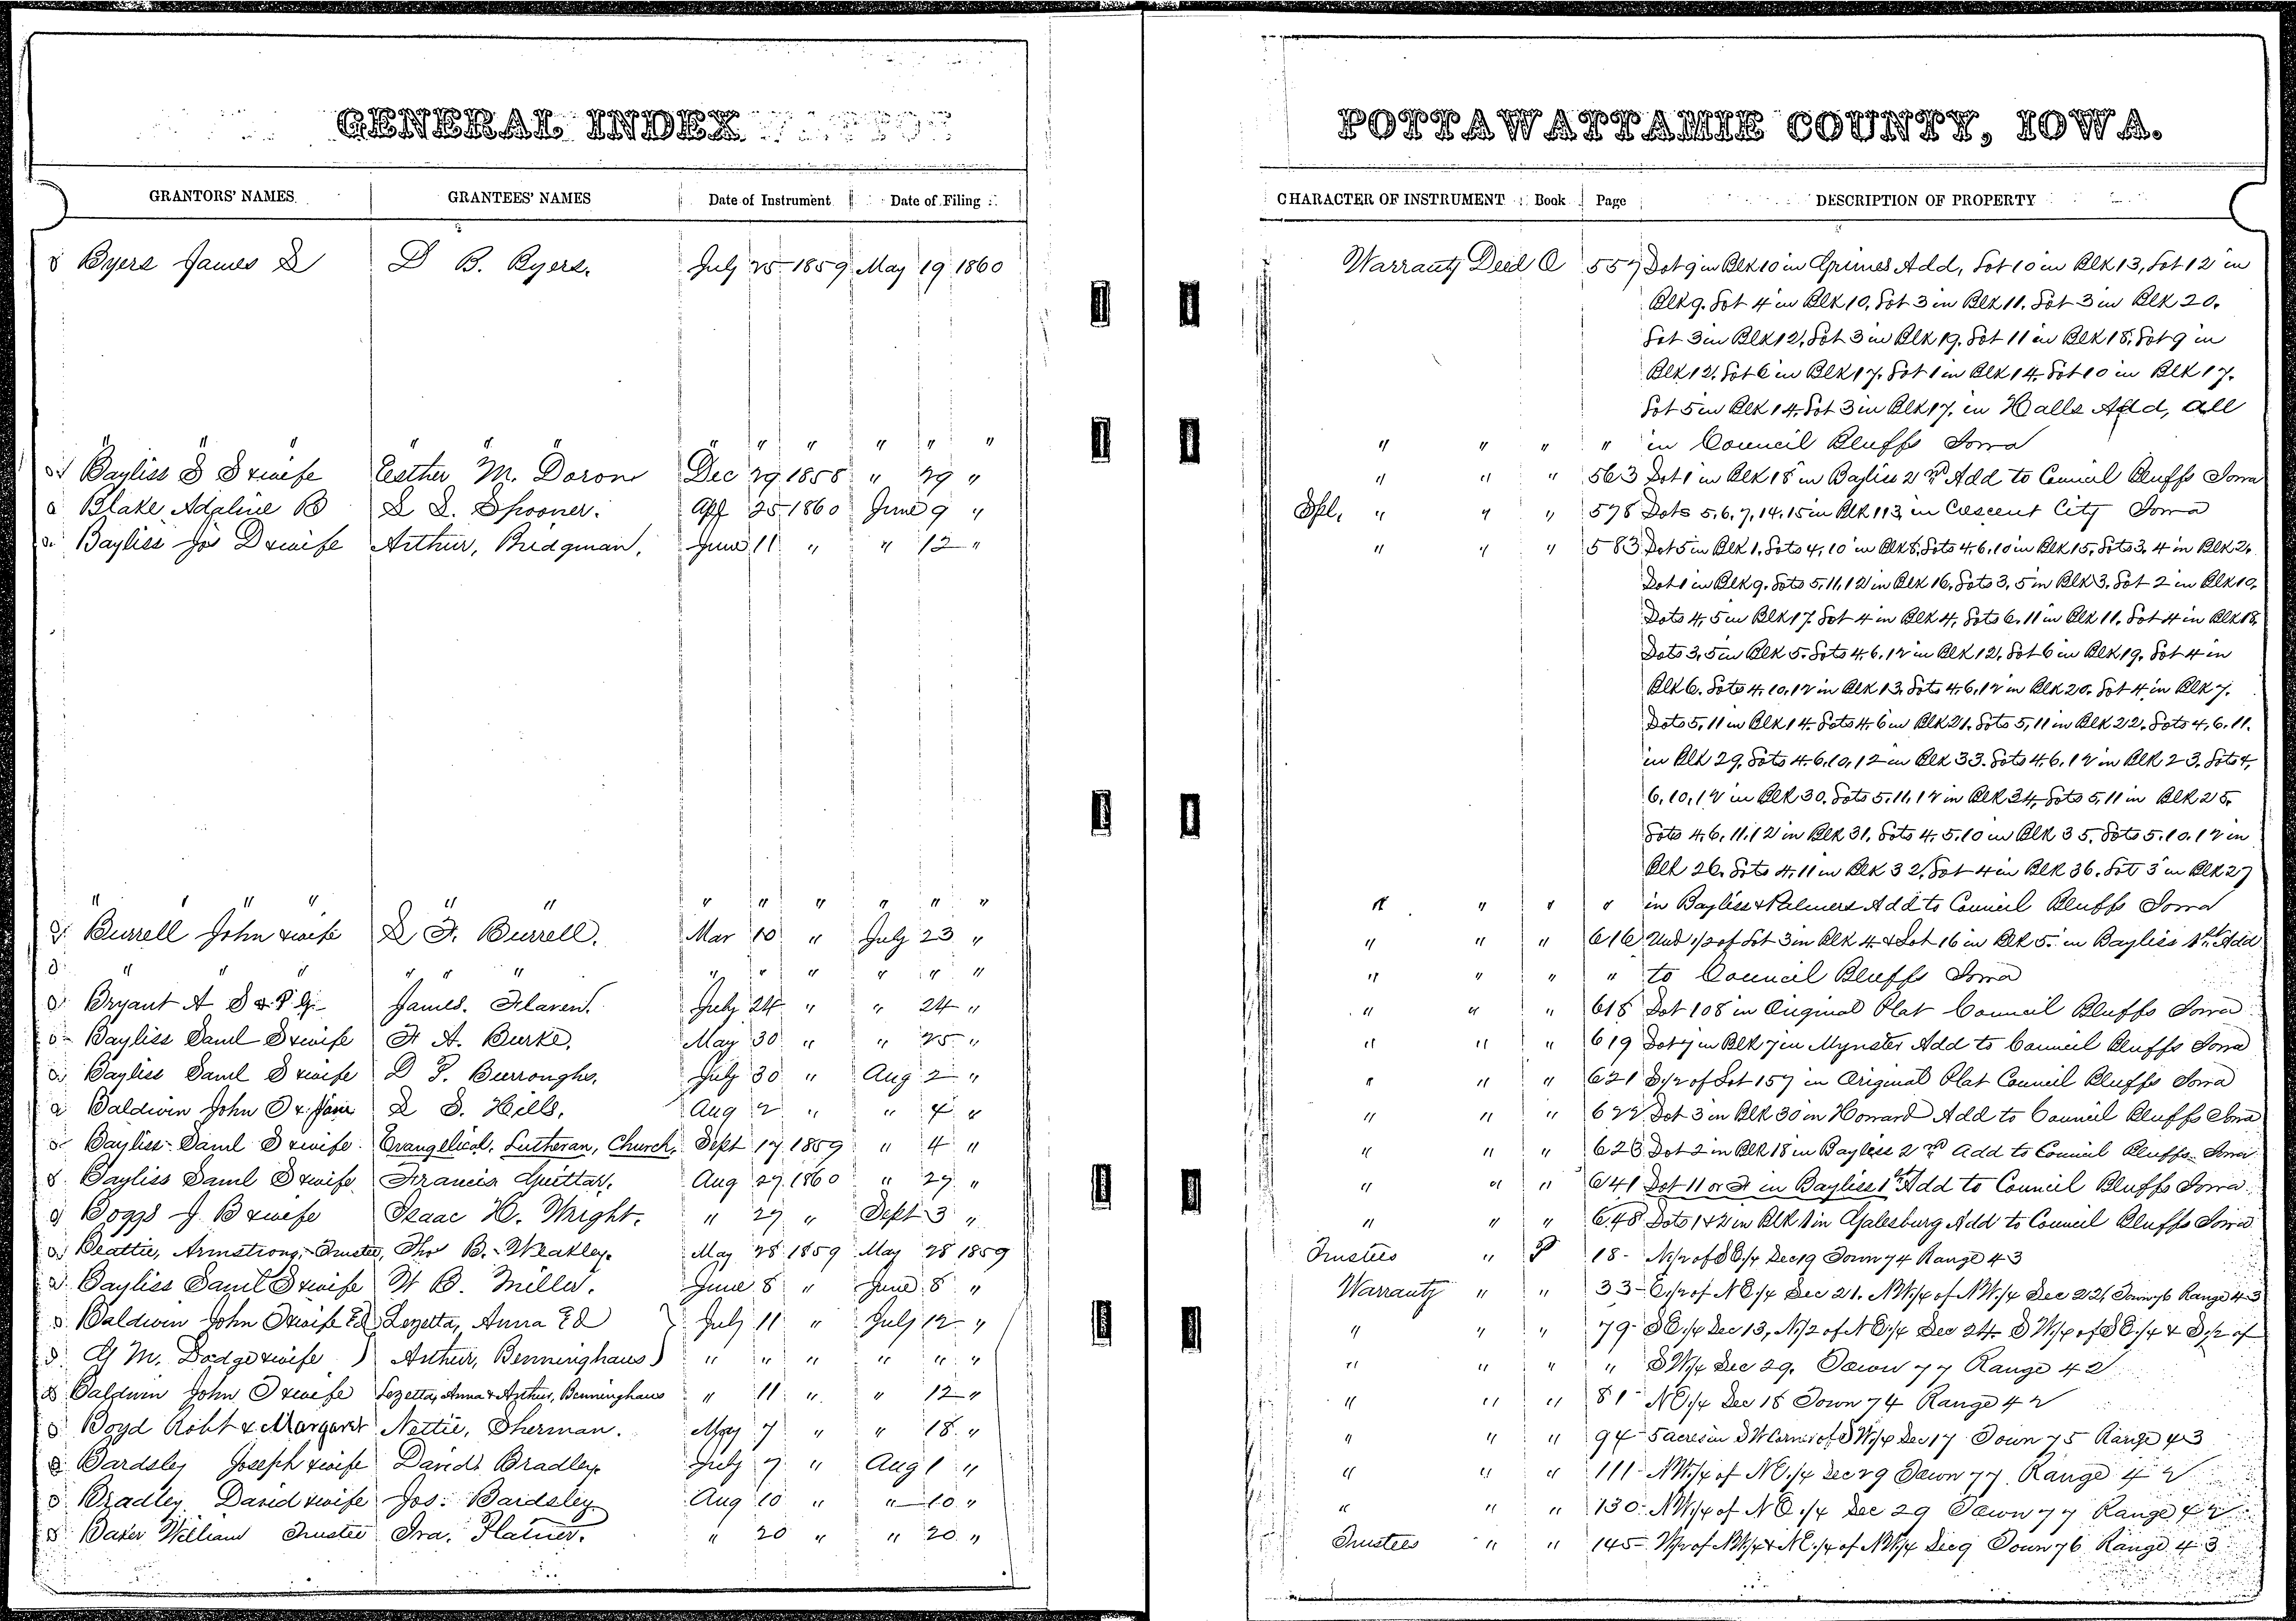 GENERAL INDEX
GRANTORS' NAMES GRANTEES' NAMES Date of Instrument Date of Filing
Byers James S D. B. Byers. July 25 1859 May 19 1860
" " " " " " " " " " " "
Bayliss S S & wife Esther M. Doron Dec 29 1858 " 29 "
Blake Adaline B S. S. Spooner. Apl 25 1860 June 9 "
Bayliss Jos D & wife Arthur, Bridgman. June 11 " " 12 "
" " " " " " " " " " " "
Burrell John & wife D. F. Burrell. Mar 10 " July 23 "
" " " " " " " " " " " "
Bryant A S & P. G. James. Flaven. July 24 " " 24 "
Bayliss Saml S & wife F. A. Burke. May 30 " " 25 "
Bayliss Saml S & wife D. T. Burroughs. July 30 " Aug 2 "
Baldwin John O & Jane L. S. Hills. Aug 2 " " 4 "
Bayliss Saml S & wife Evangelical. Lutheran, Church, Sept 17 1859 " 4 "
Bayliss Saml S & wife Francis Guittar. Aug 27 1860 " 27 "
Boggs J. B & wife Isaac H. Wright. " 27 " Sept 3 "
Beattie, Armstrong, Trustee, Tho B. Weakley. May 28 1859 May 28 1859
Bayliss Saml S & wife W B. Miller. June 8 " June 8 "
Baldwin John O & wife Ed Lezetta, Anna Ed July 11 " July 12 "
G M. Dodge & wife Arthur, Benninghaus " " " " " "
Baldwin John O & wife Lezetta, Anna & Arthur, Benninghaus " 11 " " 12 "
Boyd Robt & Margaret Nettie, Sherman. May 7 " " 18 "
Bardsley Joseph & wife David Bradley. July 7 " Aug 1 "
Bradley David & wife Jos. Bardsley. Aug 10 " " 10 "
Baker William Trustee Ira. Platner. " 20 " " 20 "
POTTAWATTAMIE COUNTY, IOWA.
CHARACTER OF INSTRUMENT Book Page DESCRIPTION OF PROPERTY
Warranty Deed O 557 Lot 9 in Blk 10 in Grimes Add, Lot 10 in Blk 13, Lot 12 in
Blk 9. Lot 4 in Blk 10. Lot 3 in Blk 11. Lot 3 in Blk 20.
Lot 3 in Blk 12, Lot 3 in Blk 19. Lot 11 in Blk 18, Lot 9 in
Blk 12. Lot 6 in Blk 17. Lot 1 in Blk 14. Lot 10 in Blk 17.
Lot 5 in Blk 14. Lot 3 in Blk 17. in Halls Add, all
" " " " in Council Bluffs Iowa
" " " 563 Lot 1 in Blk 18 in Bayliss 2nd Add to Council Bluffs Iowa
Spl. " " " 578 Lots 5, 6, 7, 14, 15 in Blk 113 in Crescent City Iowa
" " " 583 Lot 5 in Blk 1, Lots 4, 10 in Blk 8, Lots 4, 6, 10 in Blk 15, Lots 3, 4 in Blk 2.
Lot 1 in Blk 9. Lots 5, 11, 12 in Blk 16. Lots 3, 5 in Blk 3. Lot 2 in Blk 10.
Lots 4, 5 in Blk 17. Lot 4 in Blk 4, Lots 6, 11 in Blk 11. Lot 4 in Blk 18.
Lots 3, 5 in Blk 5. Lots 4, 6, 12 in Blk 12, Lot 6 in Blk 19. Lot 4 in
Blk 6. Lots 4, 10, 12 in Blk 13. Lots 4, 6, 12 in Blk 20. Lot 4 in Blk 7.
Lots 5, 11 in Blk 14. Lots 4, 6 in Blk 21. Lots 5, 11 in Blk 22. Lots 4, 6, 11.
in Blk 29. Lots 4, 6, 10, 12 in Blk 33. Lots 4, 6, 12 in Blk 23. Lots 4,
6, 10, 12 in Blk 30. Lots 5, 11, 12 in Blk 34, Lots 5, 11 in Blk 25.
Lots 4, 6, 11, 12 in Blk 31. Lots 4, 5, 10 in Blk 35. Lots 5, 10, 12 in
Blk 26. Lots 4, 11 in Blk 32, Lot 4 in Blk 36. Lot 3 in Blk 27
" " " " in Bayliss & Palmers Add to Council Bluffs Iowa
" " " 616 Und 1/2 of Lot 3 in Blk 4 & Lot 16 in Blk 5. in Bayliss 1st Add
" " " " to Council Bluffs Iowa
" " " 618 Lot 108 in Original Plat Council Bluffs Iowa
" " " 619 Lot 7 in Blk 7 in Mynster Add to Council Bluffs Iowa
" " " 621 S 1/2 of Lot 157 in Original Plat Council Bluffs Iowa
" " " 622 Lot 3 in Blk 30 in Howard Add to Council Bluffs Iowa
" " " 623 Lot 2 in Blk 18 in Bayliss 2nd Add to Council Bluffs Iowa
" " " 641 Lot 11 or H in Bayliss 1st Add to Council Bluffs Iowa
" " " 648 Lots 1 & 2 in Blk 1 in Galesburg Add to Council Bluffs Iowa
Trustees " P 18 N 1/2 of SE 1/4 Sec 19 Town 74 Range 43
Warranty " " 33 E 1/2 of NE 1/4 Sec 21. NW 1/4 of NW 1/4 Sec 22, Town 76 Range 43
" " " 79 SE 1/4 Sec 13, N 1/2 of NE 1/4 Sec 24. SW 1/4 of SE 1/4 & S 1/2 of
" " " " SW 1/4 Sec 29. Town 77 Range 42
" " " 81 NE 1/4 Sec 18 Town 74 Range 42
" " " 94 5 acres in SW Corner of SW 1/4 Sec 17 Town 75 Range 43
" " " 111 NW 1/4 of NE 1/4 Sec 29 Town 77 Range 42
" " " 130 NW 1/4 of NE 1/4 Sec 29 Town 77 Range 42
Trustees " " 145 W 1/2 of NW 1/4 & NE 1/4 of NW 1/4 Sec 9 Town 76 Range 43